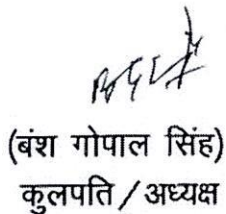 (बंश गोपाल सिंह)
कुलपति / अध्यक्ष